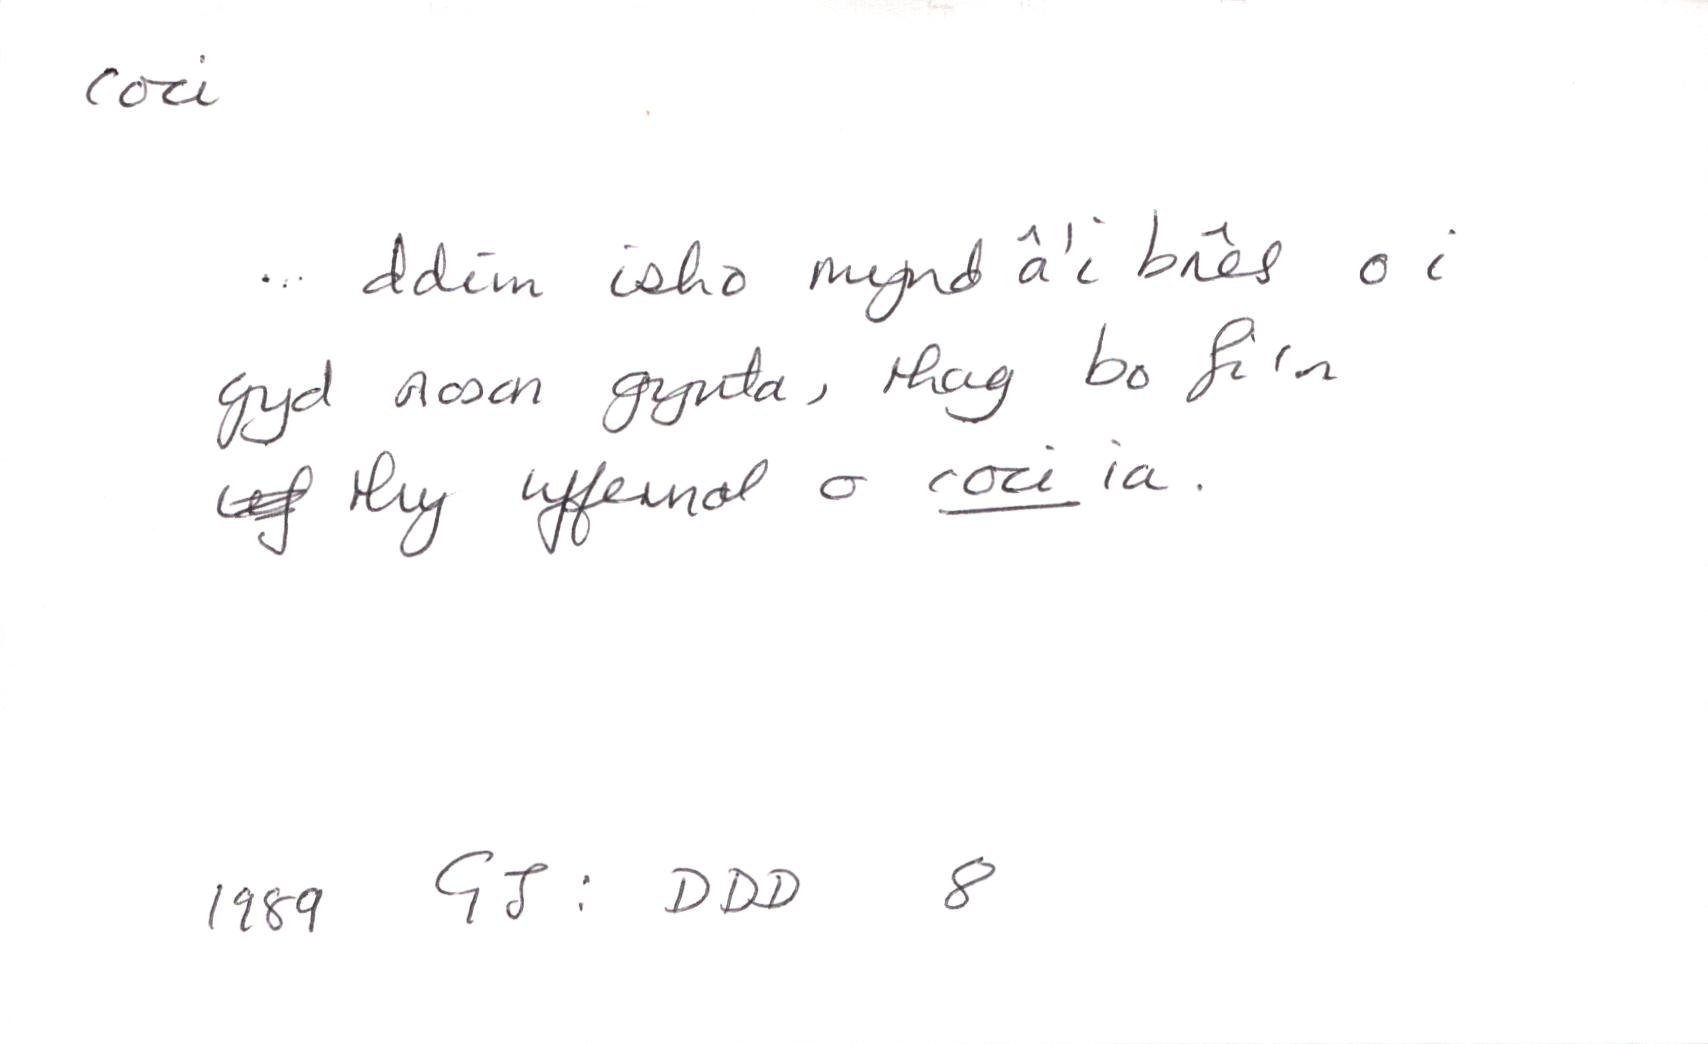 coci
... ddim isho mynd â'i brês o i
gyd noson gynta, rhag bo fi'n
rhy uffernol o coci ia.
1989 GJ: DDD 8